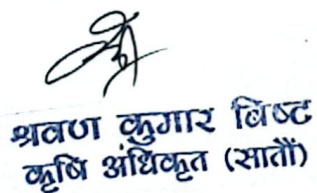 श्रवण कुमार विष्ट
कृषि अधिकृत (सातौं)